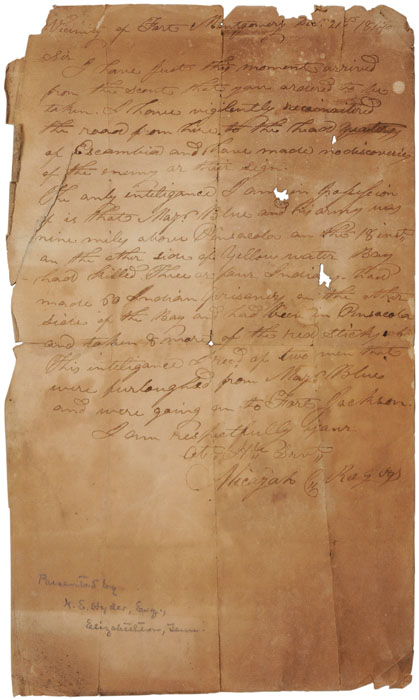 Vicinity of Fort Montgomery Decr 21st
Sir
I have Just this moment arrived
from the scout that you ordered to be
taken. I have vigilently reconnoitered
the road from here to the head quarters
of Escambia and have made no discoveries
of the enemy or their sign
The only inteligance I am in possession
of is that Majr Blue and his army was
nine mily above Pensacola on the 18 inst
on the other side of Yellow water Bay
had killed three or four Indians had
made 50 Indian prisoners on the other
side of the Bay and had been in Pensacola
and taken 8 more of the red sticks
This inteligance I recd of two men that
were furloughed from Majr Blue
and were going on to Fort Jackson.
I am respectfully your
Obt Hle Srvt
Micazah
Presented by
N. E. Hyder, Esq.,
Elizabethton, Tenn.